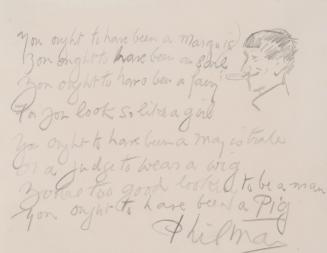 You ought to have been a Marquis
You ought to have been an Earl
You ought to have been a fairy
For you look so like a girl
You ought to have been a majistrate
Or a judge to wear a wig
too good looking to be a man
You ought to have been a Pig
Phil May